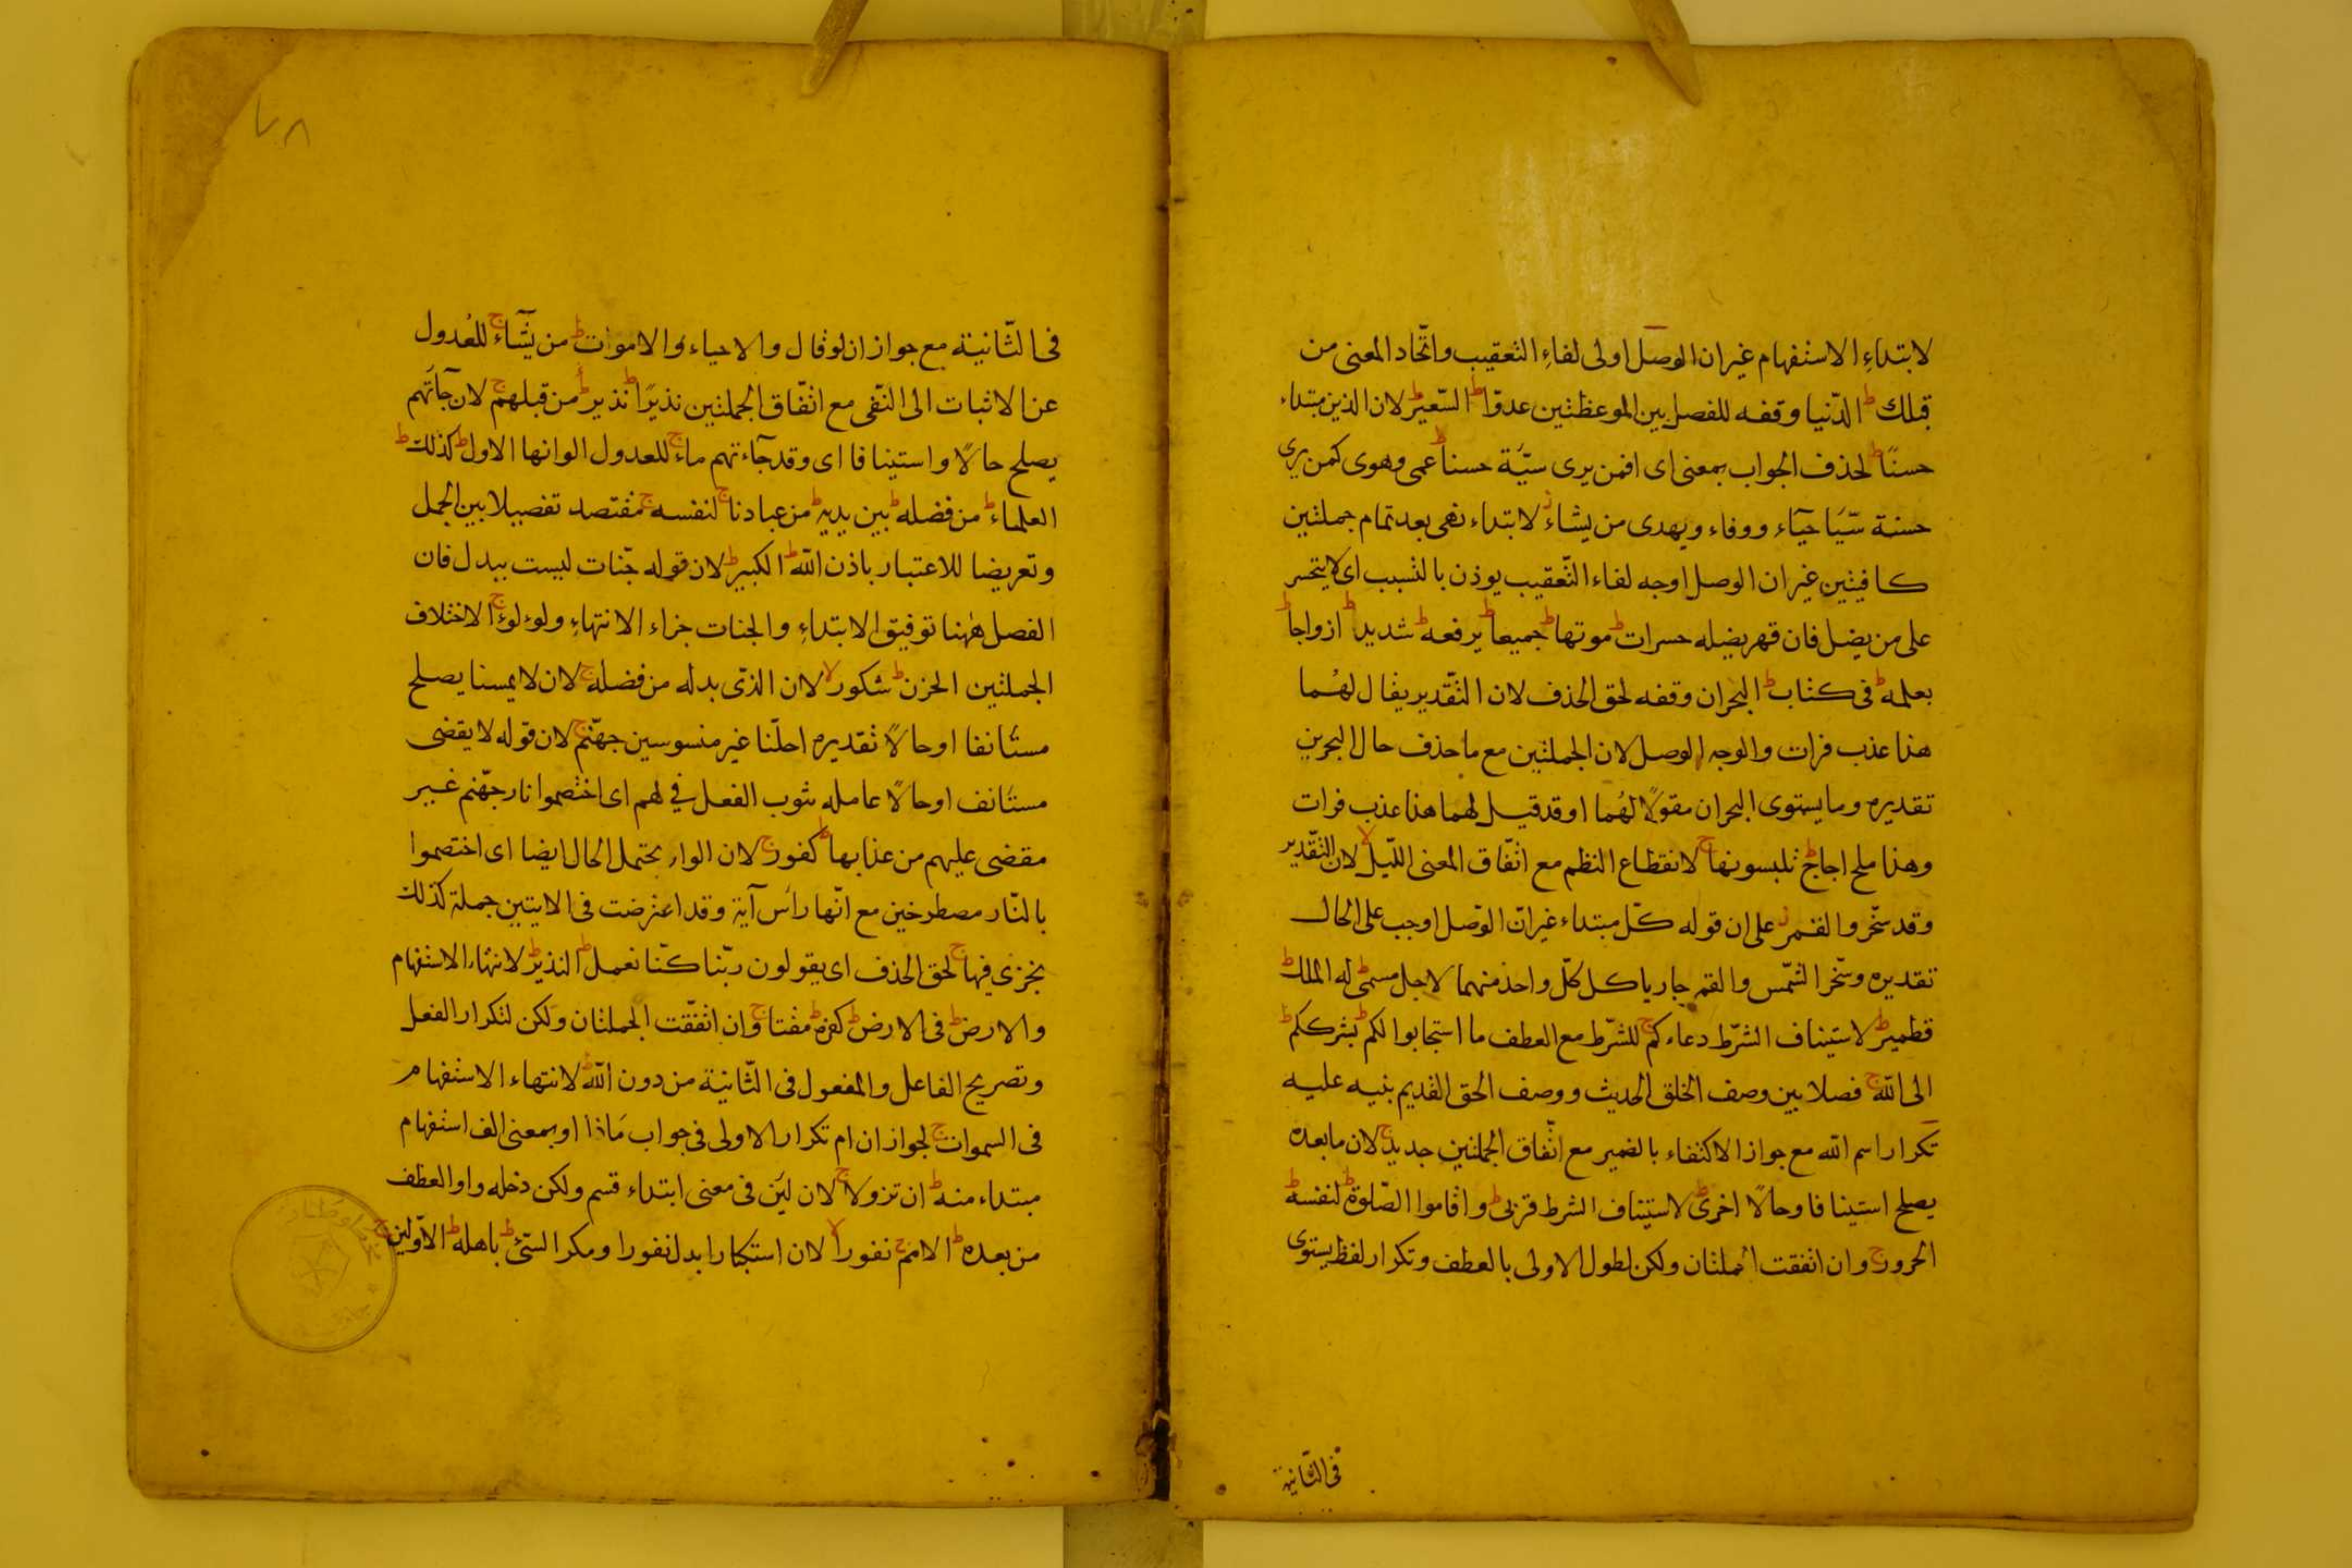 لابتداءِ الاستفهام غير ان الوصل اولى لفاءِ التعقيب واتّحاد المعنى من
قبلك ط الدّنيا وقفه للفصل بين الموعظتين عدوّا ط السّعير ط لان الذين مبتداء
حسنًا ط لحذف الجواب بمعنى اى افمن يرى سيّة حسنا ط عمى وهوى كمن يرى
حسنة سّيَا حيّاء ووفاء ويهدى من يشاء ز لابتداء نهى بعد تمام جملتين
كافيتين غير ان الوصل اوجه لفاء التّعقيب يوذن بالتسبب اى لا يتحسر
على من يضل فان قهر يضيله حسرات ط موتها ط جميعا ط يرفعه ط شديد ط ازواجا ط
بعلمه ط فى كتاب ط البحران وقفه لحق الحذف لان التّقدير يقال لهُما
هذا عذب فرات والوجه الوصل لان الجملتين مع ما حذف حال البحرين
تقديره وما يستوى البحران مقولًا لهُما او قد قيل لهما هذا عذب فرات
وهذا ملح اجاج ط تلبسونها ج لانقطاع النظم مع اتّفاق المعنى اللّيل لا لان التّقدير
وقد سخّر والقمر ز على ان قوله كلّ مبتداء غير انّ الوّصل اوجب على الحال
تقديره وسّخر الشّمس والقمر جاريا كل كلّ واحد منهما لاجل مسمّى ط له الملك ط
قطمير ط لاستيناف الشّرط دعاءكم ج للشّرط مع العطف ما استجابوا لكم ط بشرككم ط
الى اللّه ج فصلا بين وصف الخلق الحديث ووصف الحق القديم بنيه عليه
تكرار اسم اللّه مع جواز الاكتفاء بالضمير مع اتّفاق الجملتين جديد ج لان ما بعده
يصلح استينافا وحالًا اخرى ط لاستيناف الشرط قربى ط واقاموا الصّلوة ط لنفسه ط
الحرور ج وان اتفقت الجملتان ولكن لطول الاولى بالعطف وتكرار لفظ يستوى
فى الثّانية
٧٨
فى الثّانية مع جواز ان لو قال والاحياء والاموات ط من يشّآء ج للعُدول
عن الاثبات الى النّفى مع اتّفاق الجملتين نذيرًا ط نذير ط من قبلهم ج لان جآءتهم
يصلح حالًا واستينافا اى وقد جآءتهم ماء ج للعدول الوانها الاول ط كذلك ط
العلماء ط من فضله ط بين يديه ط من عبادنا ج لنفسه ج مقتصد تفصيلا بين الجمل
وتعريضا للاعتبار باذن اللّه ط الكبير ط لان قوله جّنات ليست ببدل فان
الفصل هٰهنا توفيق الابتداءِ والجنات جزاء الانتهاءِ ولولوءا ج لاختلاف
الجملتين الحزن ط شكور لا لان الذّى بدله من فضله ج لان لا يمسنا يصلح
مستٔانفا او حالًا تقديره احلّنا غير منسوسين جهنّم ج لان قوله لا يقضى
مستَانف او حالًا عامله شوب الفعل في لهم اى اختصموا نار جهّنم غير
مقضى عليهم من عذابها ط كفور ج لان الواو يحتمل الحال ايضا اى اختصموا
بالنّار مصطرخين مع انّها راسَ آية وقد اعترضت فى الايتين جملة كذلك
نجزى فيها ج لحق الحذف اى يقولون ربّنا كنّا نعمل ط النذير ط لانتهاء الاستفهام
والارض ط فى الارض ط كفره ط مقتا ج وان اتّفقت الجملتان ولكن لتكرار الفعل
وتصريح الفاعل والمفعول فى الثّانية من دون اللّه ط لانتهاء الاستفهام
فى السموات ج لجواز ان ام تكرار الاولى فى جواب مَاذا او بمعنى الف استفهام
مبتداء منه ط ان تزولا ج لان لين فى معنى ابتداء قسم ولكن دخله واو العطف
من بعده ط الامم ج نفورا لا لان استكبارا بدل نفورا ومكر السّئ ط باهله ط الاوّلين ج